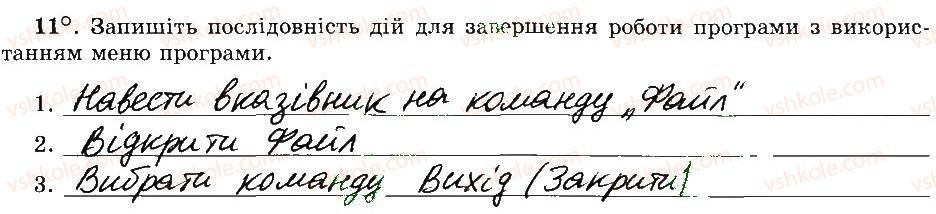 11°. Запишіть послідовність дій для завершення роботи програми з використанням меню програми.
1. Навести вказівник на команду „Файл"
2. Відкрити Файл
3. Вибрати команду Вихід (Закрити)